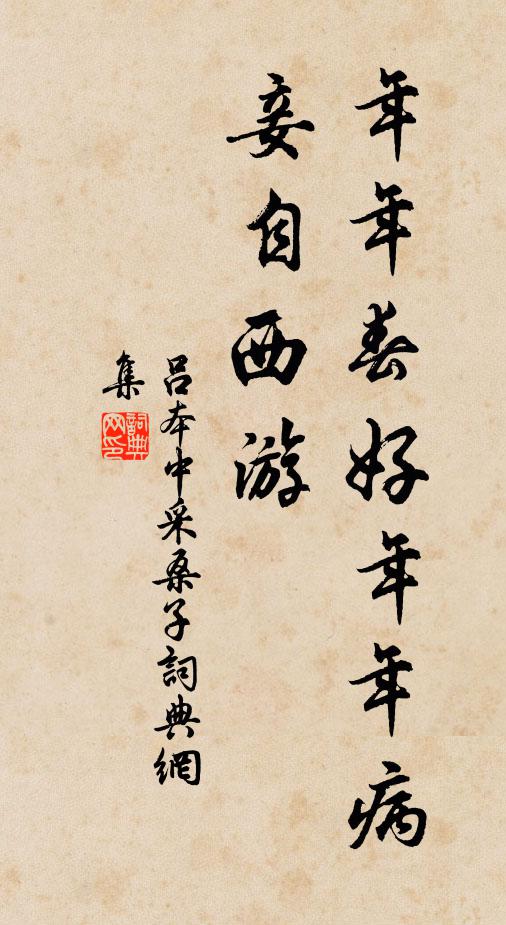 年年春好年年病
妾自西游
吕本中采桑子詞典網
集
詞典
网印